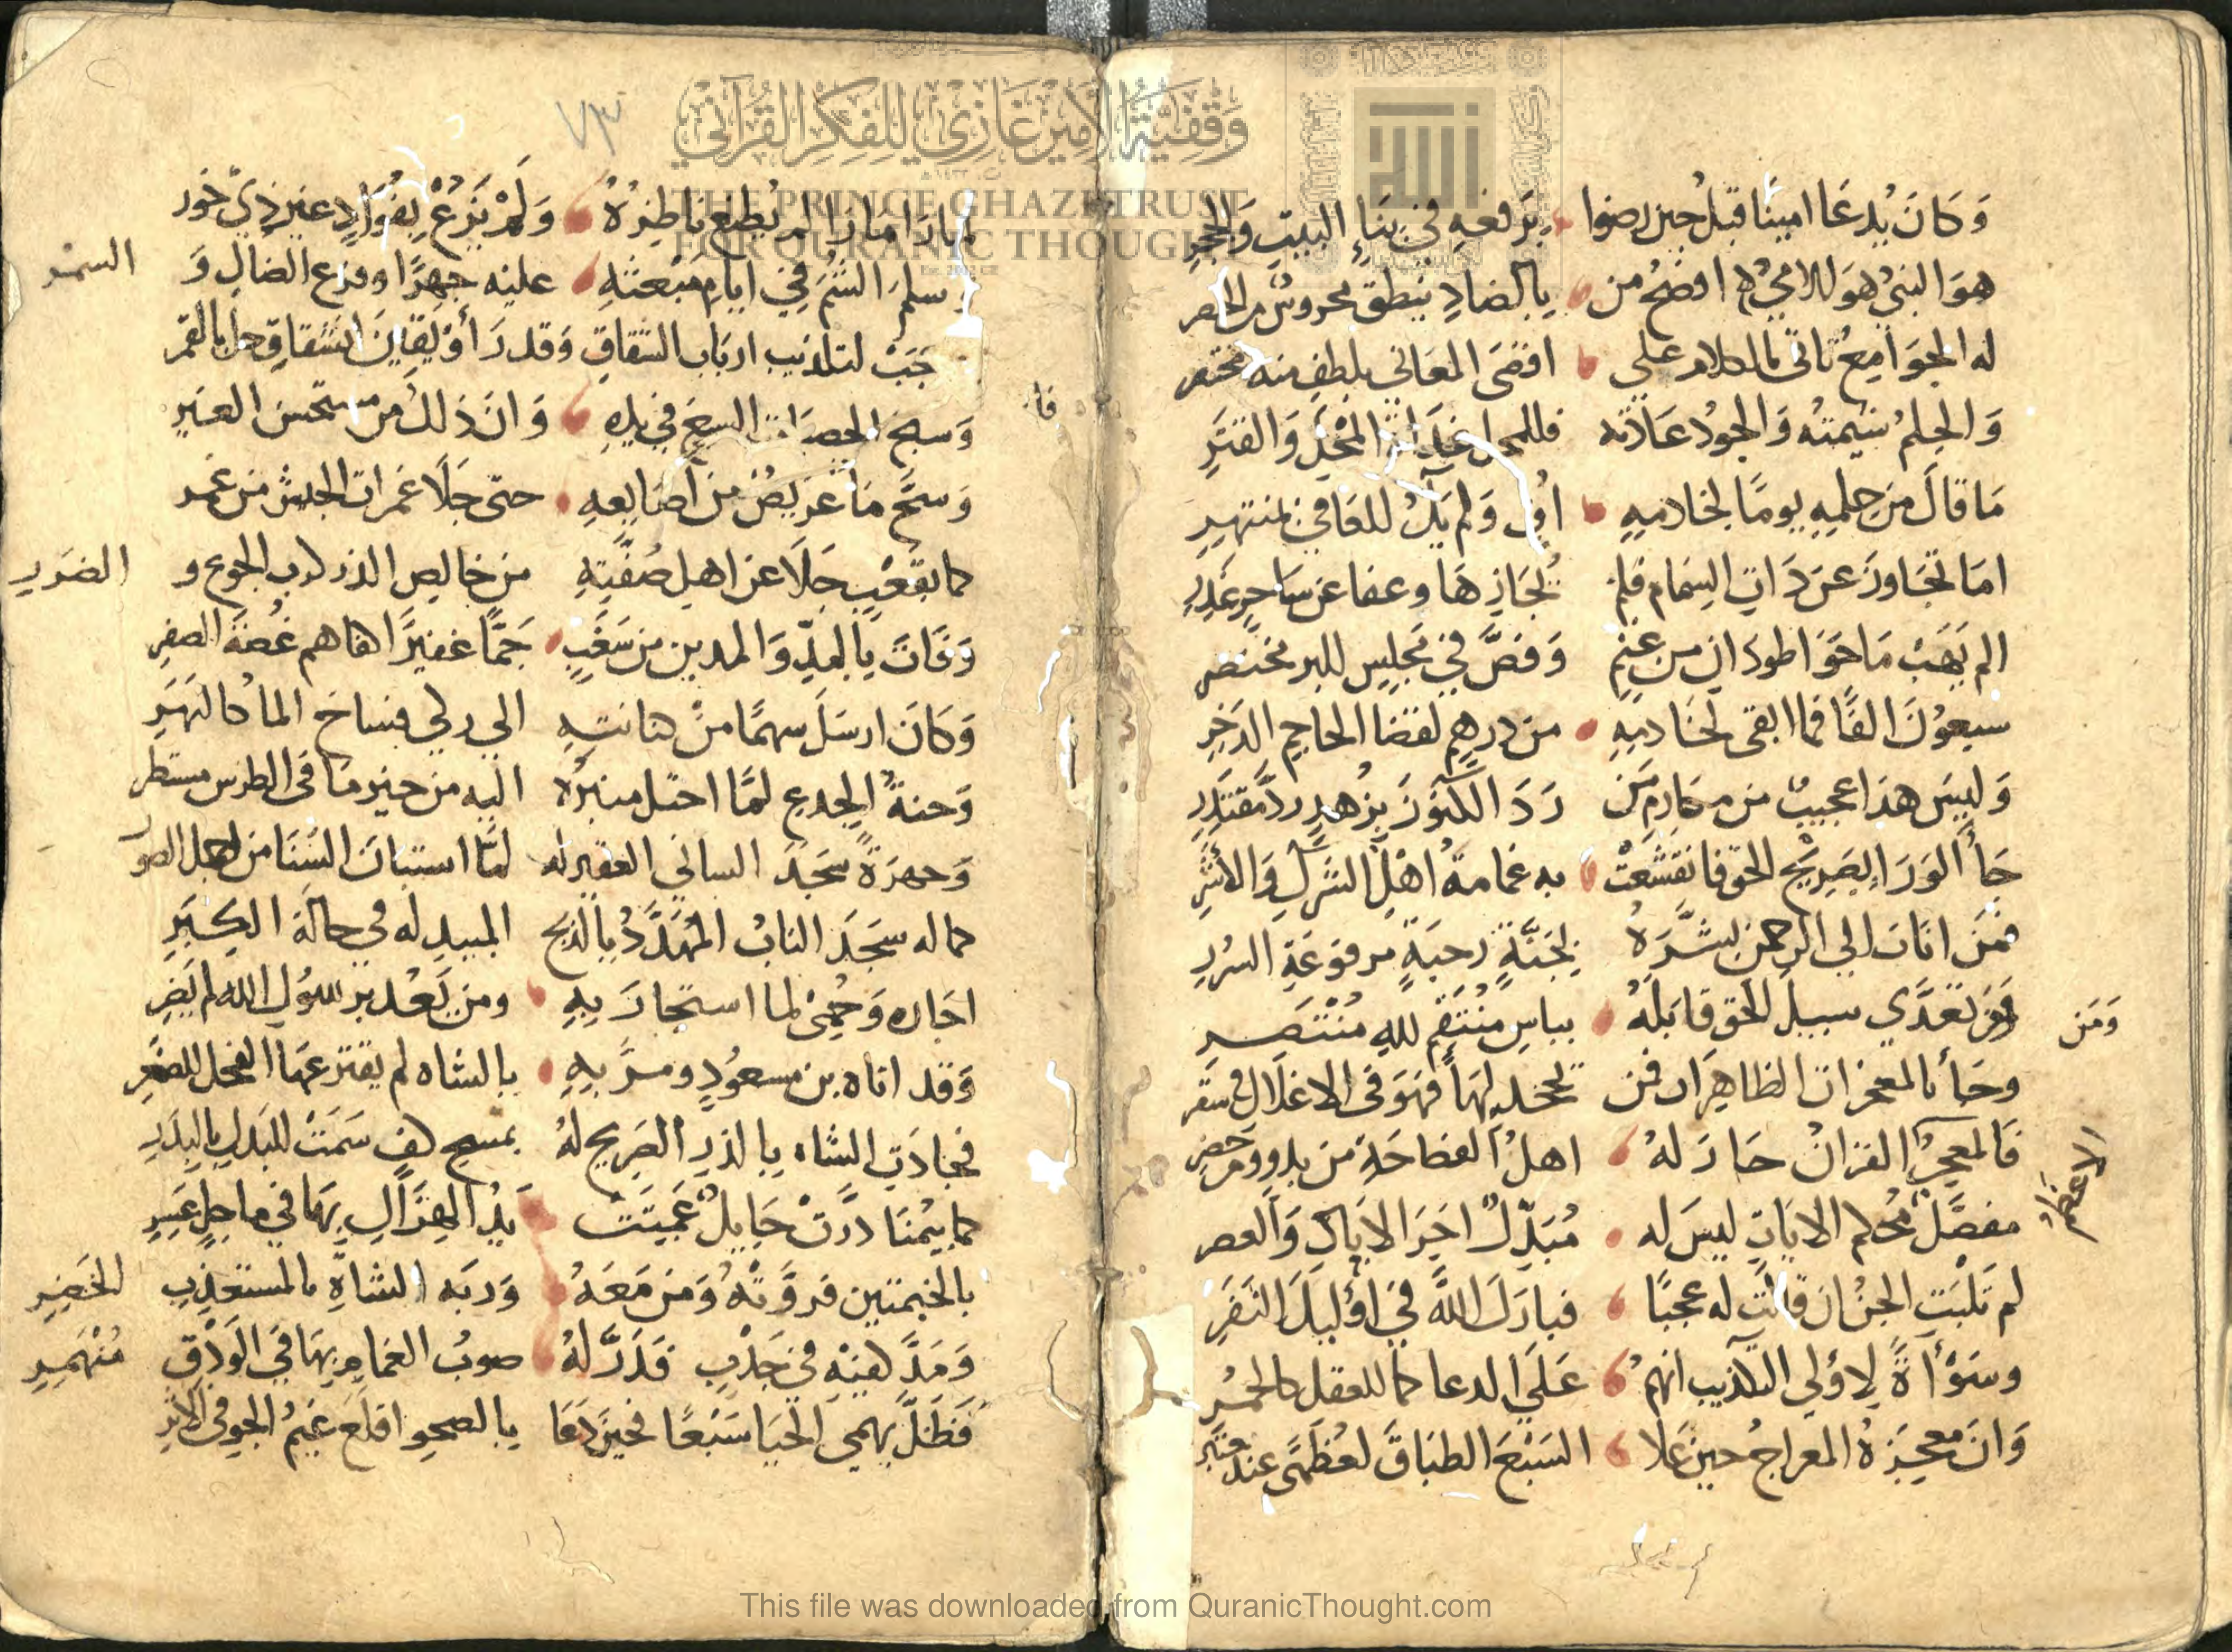 وَكَانَ يُدعَا امينًا قبلُ حين رضوا بَرفعهِ في بنَاءِ البيتِ وَالحجرِ
هوَ النبيُّ هوَ الامي افصحُ من بالضادِ ينطق محروسٌ من الحصر
له الجوَامِعُ تاتى بالكلام علي اقصَى المعَاني بلطفٍ منه مختصر
وَالحِلمُ شيمتهُ وَالجودُ عَادَته
مَا قالَ من حِلمِهِ يومًا لخادمِهِ افٍ وَلم يَكُ للعَافي بمنتهرِ
امَا تجَاوزَ عن ذَاتِ السِمَام فلم يُجَازِهَا وعفا عن سَاحرٍ غَدرِ
الم يَهَبْ مَا حَوَا طودَانِ من غنمٍ وَفضَّ في مَجلسٍ للبر مختصر
سبعُونَ الفًا فما ابقى لخَادمِهِ من درهمٍ لقضا الحاجِ الدَخِرِ
وَليسَ هذا عجيبٌ من مكارم مَن رَدَ الكنوزَ بزُهدٍ ردَّ مقتَدِرِ
جَأَ الوَرَا بصَرِيح الحق فانقشعَتْ به غمامةُ اهْلِ الشركِ وَالأشَرِ
فمَن انَابَ الي الرحمن بشَّرَهُ بجَنَّةٍ رحبَةٍ مرفوعَةِ السُررِ
تعَدَّي سبيلَ الحق قابَلَهُ بباسِ مُنْتَقِمٍ للهِ مُنْتَصِرِ
وَمَن
وجَأ بالمعجزات الظاهِرَات فمن يجحد لهَا فهَوَ فى الاغلال في سقر
فالمعجزُ القرانُ حَارَ لهُ اهلُ الفصَاحَةِ من بدوٍ ومن حضرِ
الاعظم
مفصَّلٌ مُحكم الايَاتِ ليسَ له مُبَدِّلٌ اخِرَ الابَادِ وَالعصر
لم تَلبَثِ الجنُ ان قالَت له عجبًا فبادَرَ اللهَ في اوليكَ النَفَرِ
وسَوْأةً لِاوْلي التكذيب انهمُ
وَانَ معجِزةُ المعراجُ حين عَلا السَبْعَ الطبَاقَ لعُظمَى عند معتبر
وَقْفِيَّةُ الأَمِير غَازِي لِلفِكْرِ القُرْآنِي
THE PRINCE GHAZI TRUST
FOR QURANIC THOUGHT
٧٣
وَلَمْ يَزُغْ بفُوَادٍ غير ذِيْ خَور
وسلمَ الشُمُ في ايامِ مَبْعثهِ عليه جهرًا وفرع الضالِ وَ السمُر
لتكذيب اربَاب الشقاقِ وَقد رَأوْ يَقينَ انشقاقٍ حل بالقمر
وَسبح الحصيَات السبعَ في يدهِ وَانَ ذلكَ من مستحسَن العبَرِ
فا
وَسحَّ مَاءٌ عَزيضٌ من اصَابِعِهِ حتى جَلَا غمرات الجيش من غمر
كما بقعْبٍ جَلَا عن اهلِ صُفَّتِهِ من خالِص الدَر كرب الجوع و الضرَرِ
وَقَاتَ بالمدِّ وَالمدين من سَغَبٍ جَمًّا غفيرًا
وَكَانَ ارسَلَ سهمًا من كنانتِهِ الي ركيٍ فساخ الما كالنَهَرِ
وَحنةُ الجدعِ لمَّا احتل منبرَهُ اليه من خير مَا في الطرس مستطر
وَجهرَةً سَجَدَ الساني العقير له لمَّا استبانَ السَنَا من اجمل الصور
كما له سجَدَ النابُ المُهَدَّدُ بالذبح المبيدِ له في حالةِ الكِبَرِ
اجَاره وَحُمي لما استجارَ بِهِ ومن يَعُذ برسُولِ الله لم يُضَرِ
وَقد اتاه بن مسعُودٍ ومرَّ بِهِ بالشاه لم يقترعهَا الفحل للصغَرِ
فجادَتِ الشاه بالدَرِ الصَريح لهُ بمسحِ كفٍ سَمَتْ للبَذلِ بالبِدَرِ
كما بيُمْنَا درَّتْ حَايلٌ عَمِيَتَتْ يَدُ الهُزَالِ بهَا في ماحِلٍ عَسِرِ
بالخيمتين فروَّتهُ وَمَن مَعَهُ وَربَه الشاةِ بالمستعذبِ الخَضِرِ
وَمَدَّ كفيْهِ في جَدْبٍ فَدَرَّ لهُ صوبُ الغمامِ بهَا في الوَدْقِ مُنْهَمِرِ
فَظَلَّ يهمي الحيَا سَبْعًا فحينَ دَعَا بالصحوِ اقلعَ غيمُ الجو في الاثرِ
This file was downloaded from QuranicThought.com